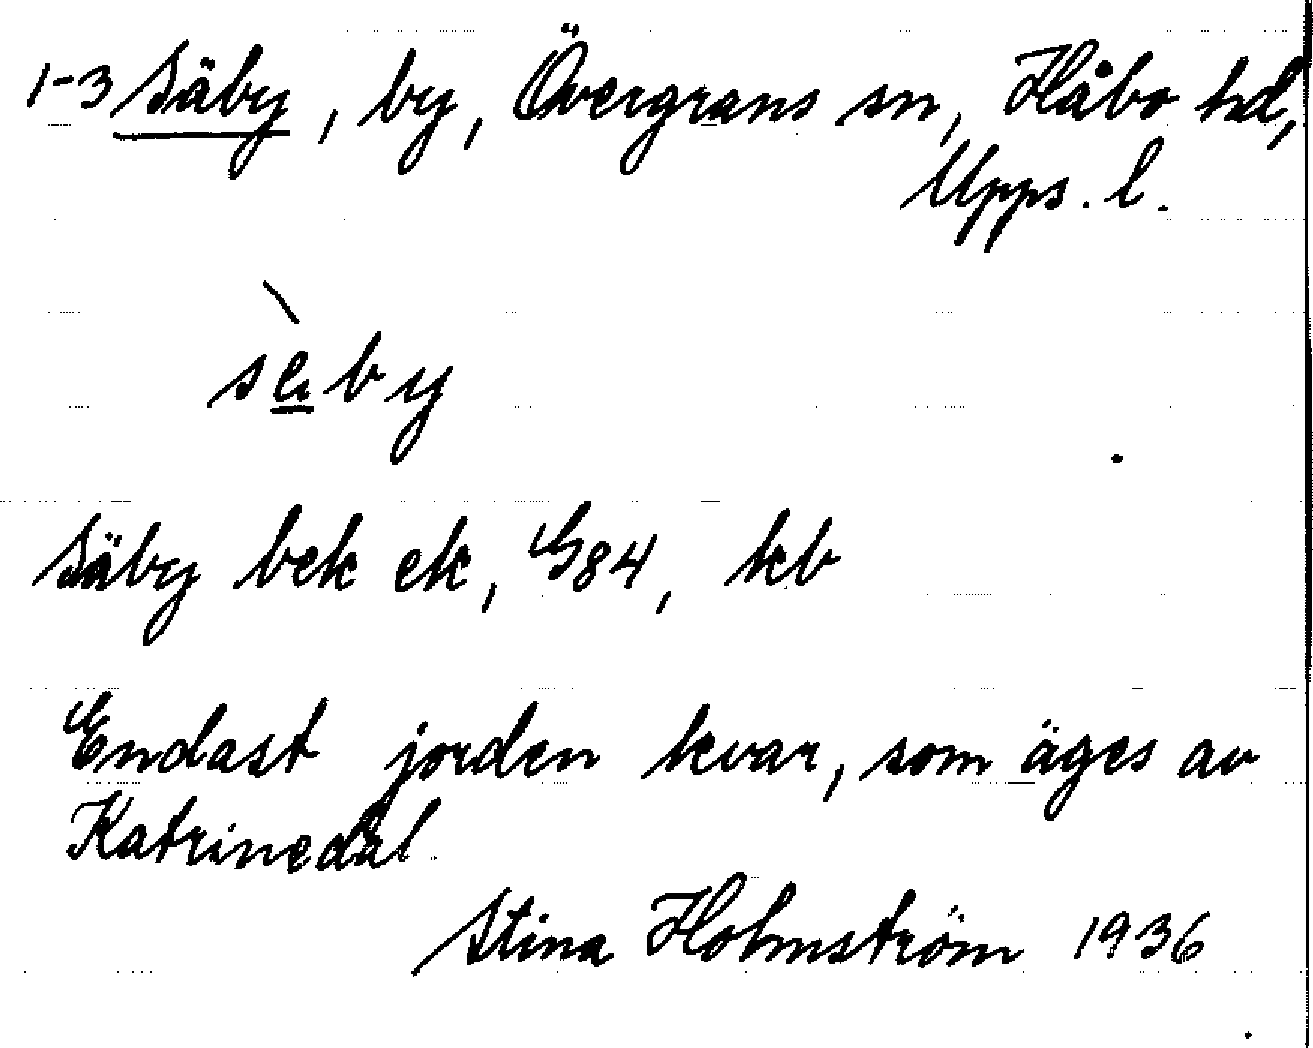 1-3 Säby, by, Övergrans sn, Håbo hd,
Upps. l.
sèby
Säby bek ek, G84, kb
Endast jorden kvar, som äges av
Katrinedal.
Stina Holmström 1936